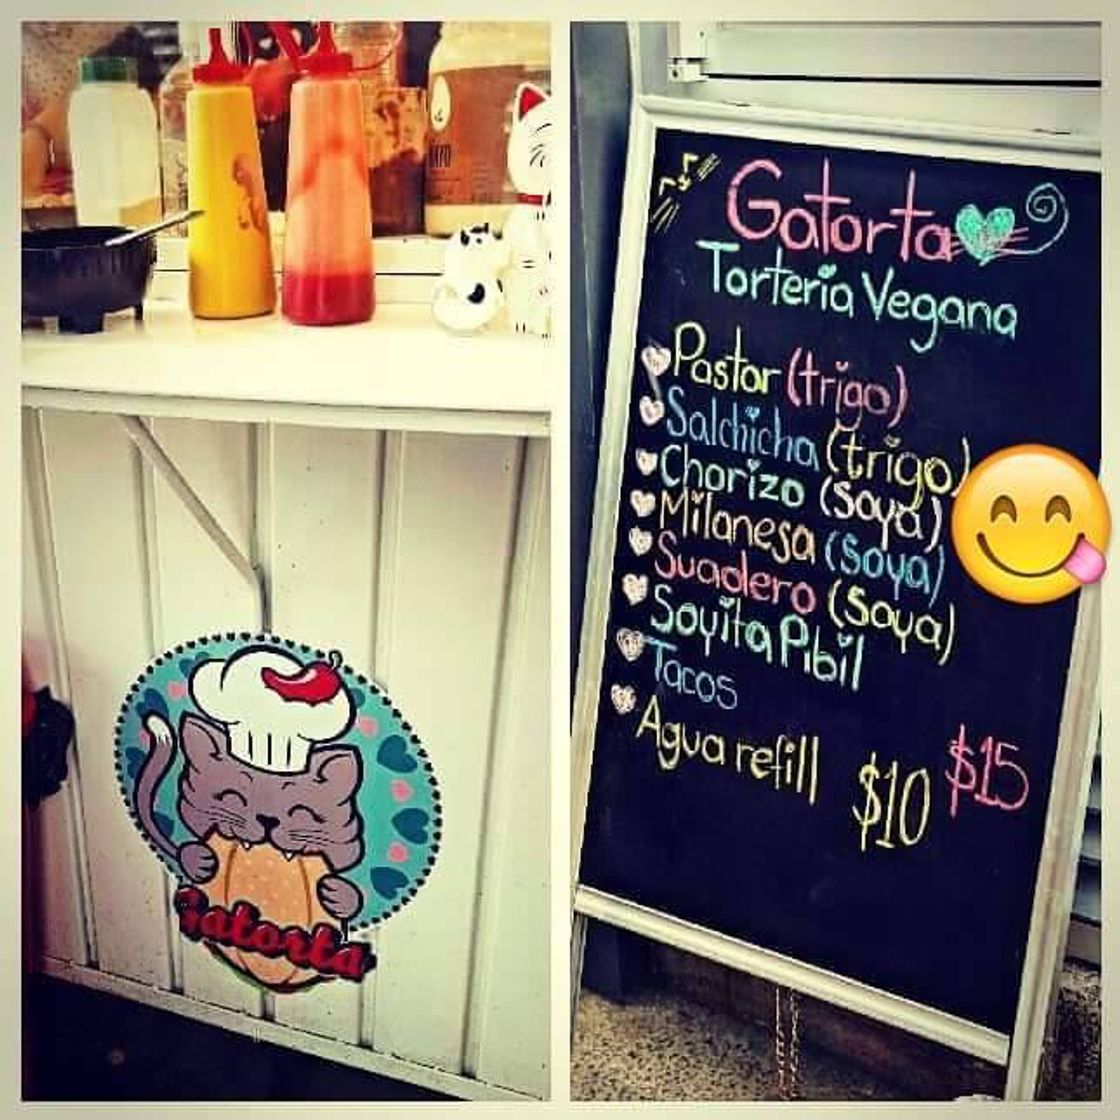 Gatorta
Gatorta
Tortería Vegana
Pastor (trigo)
Salchicha (trigo)
Chorizo (Soya)
Milanesa (Soya)
Suadero (Soya)
Soyita Pibil
Tacos
Agua refill $10 $15